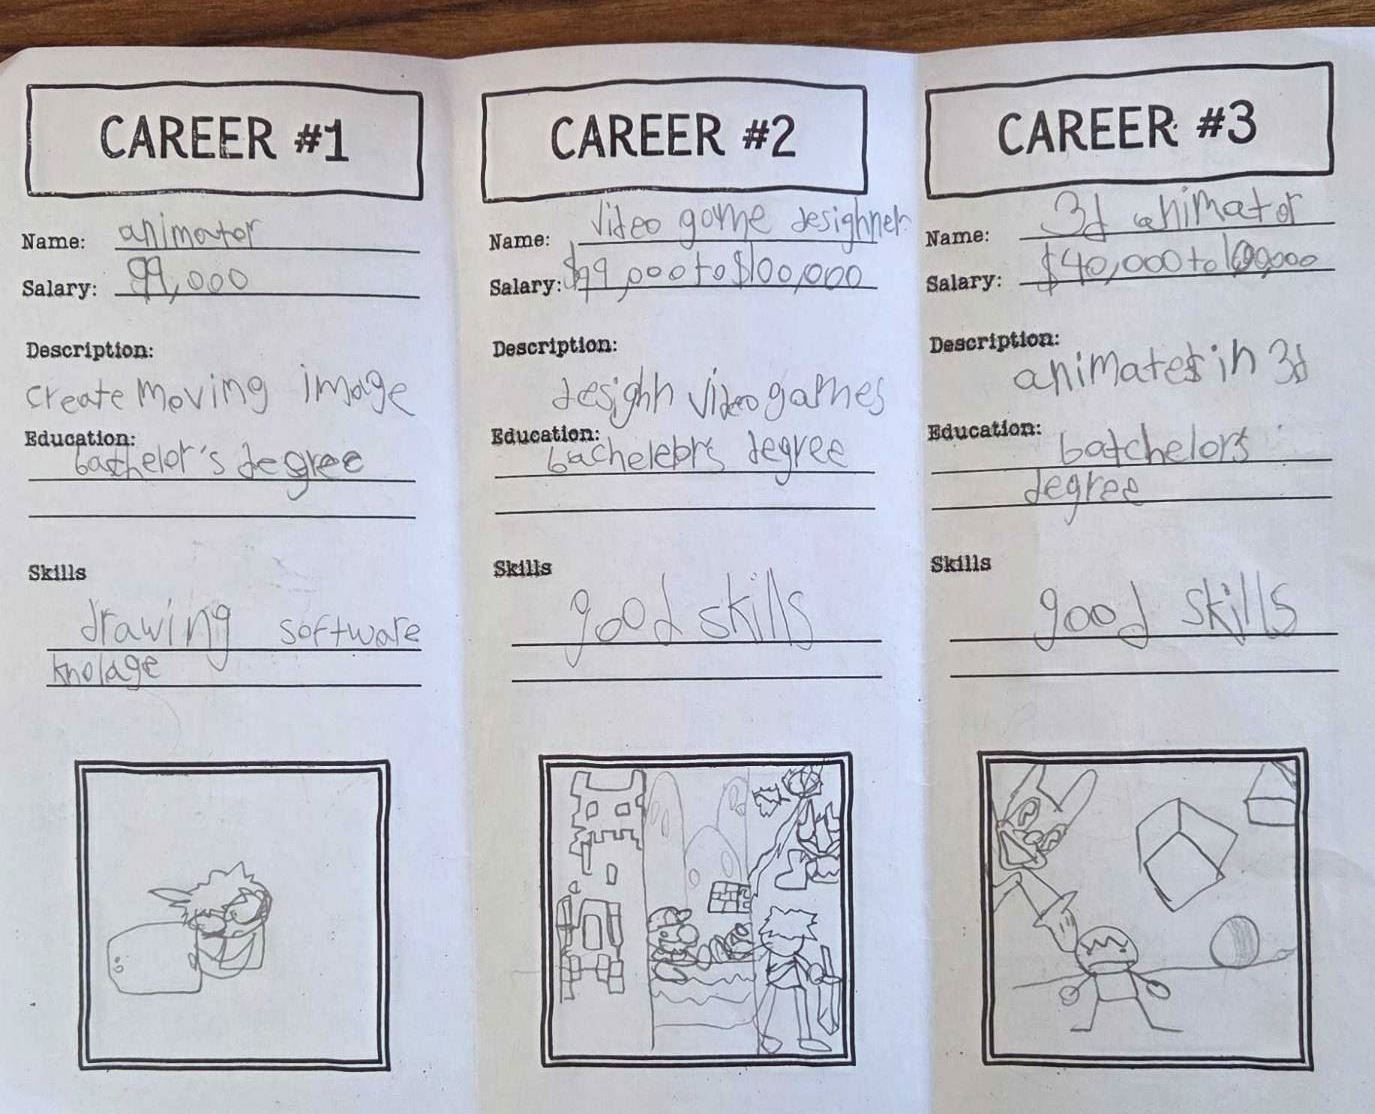 CAREER #1
Name: animator
Salary: 99,000
Description:
create moving image
Education:
bachelor's degree
Skills
drawing software
knolage
CAREER #2
Name: video game desighner
Salary: $99,000 to $100,000
Description:
desighn video games
Education:
degree
Skills
good skills
CAREER #3
Name: 3d animator
Salary: $40,000 to 100,000
Description:
animates in 3d
Education:
batchelors
degree
Skills
good skills